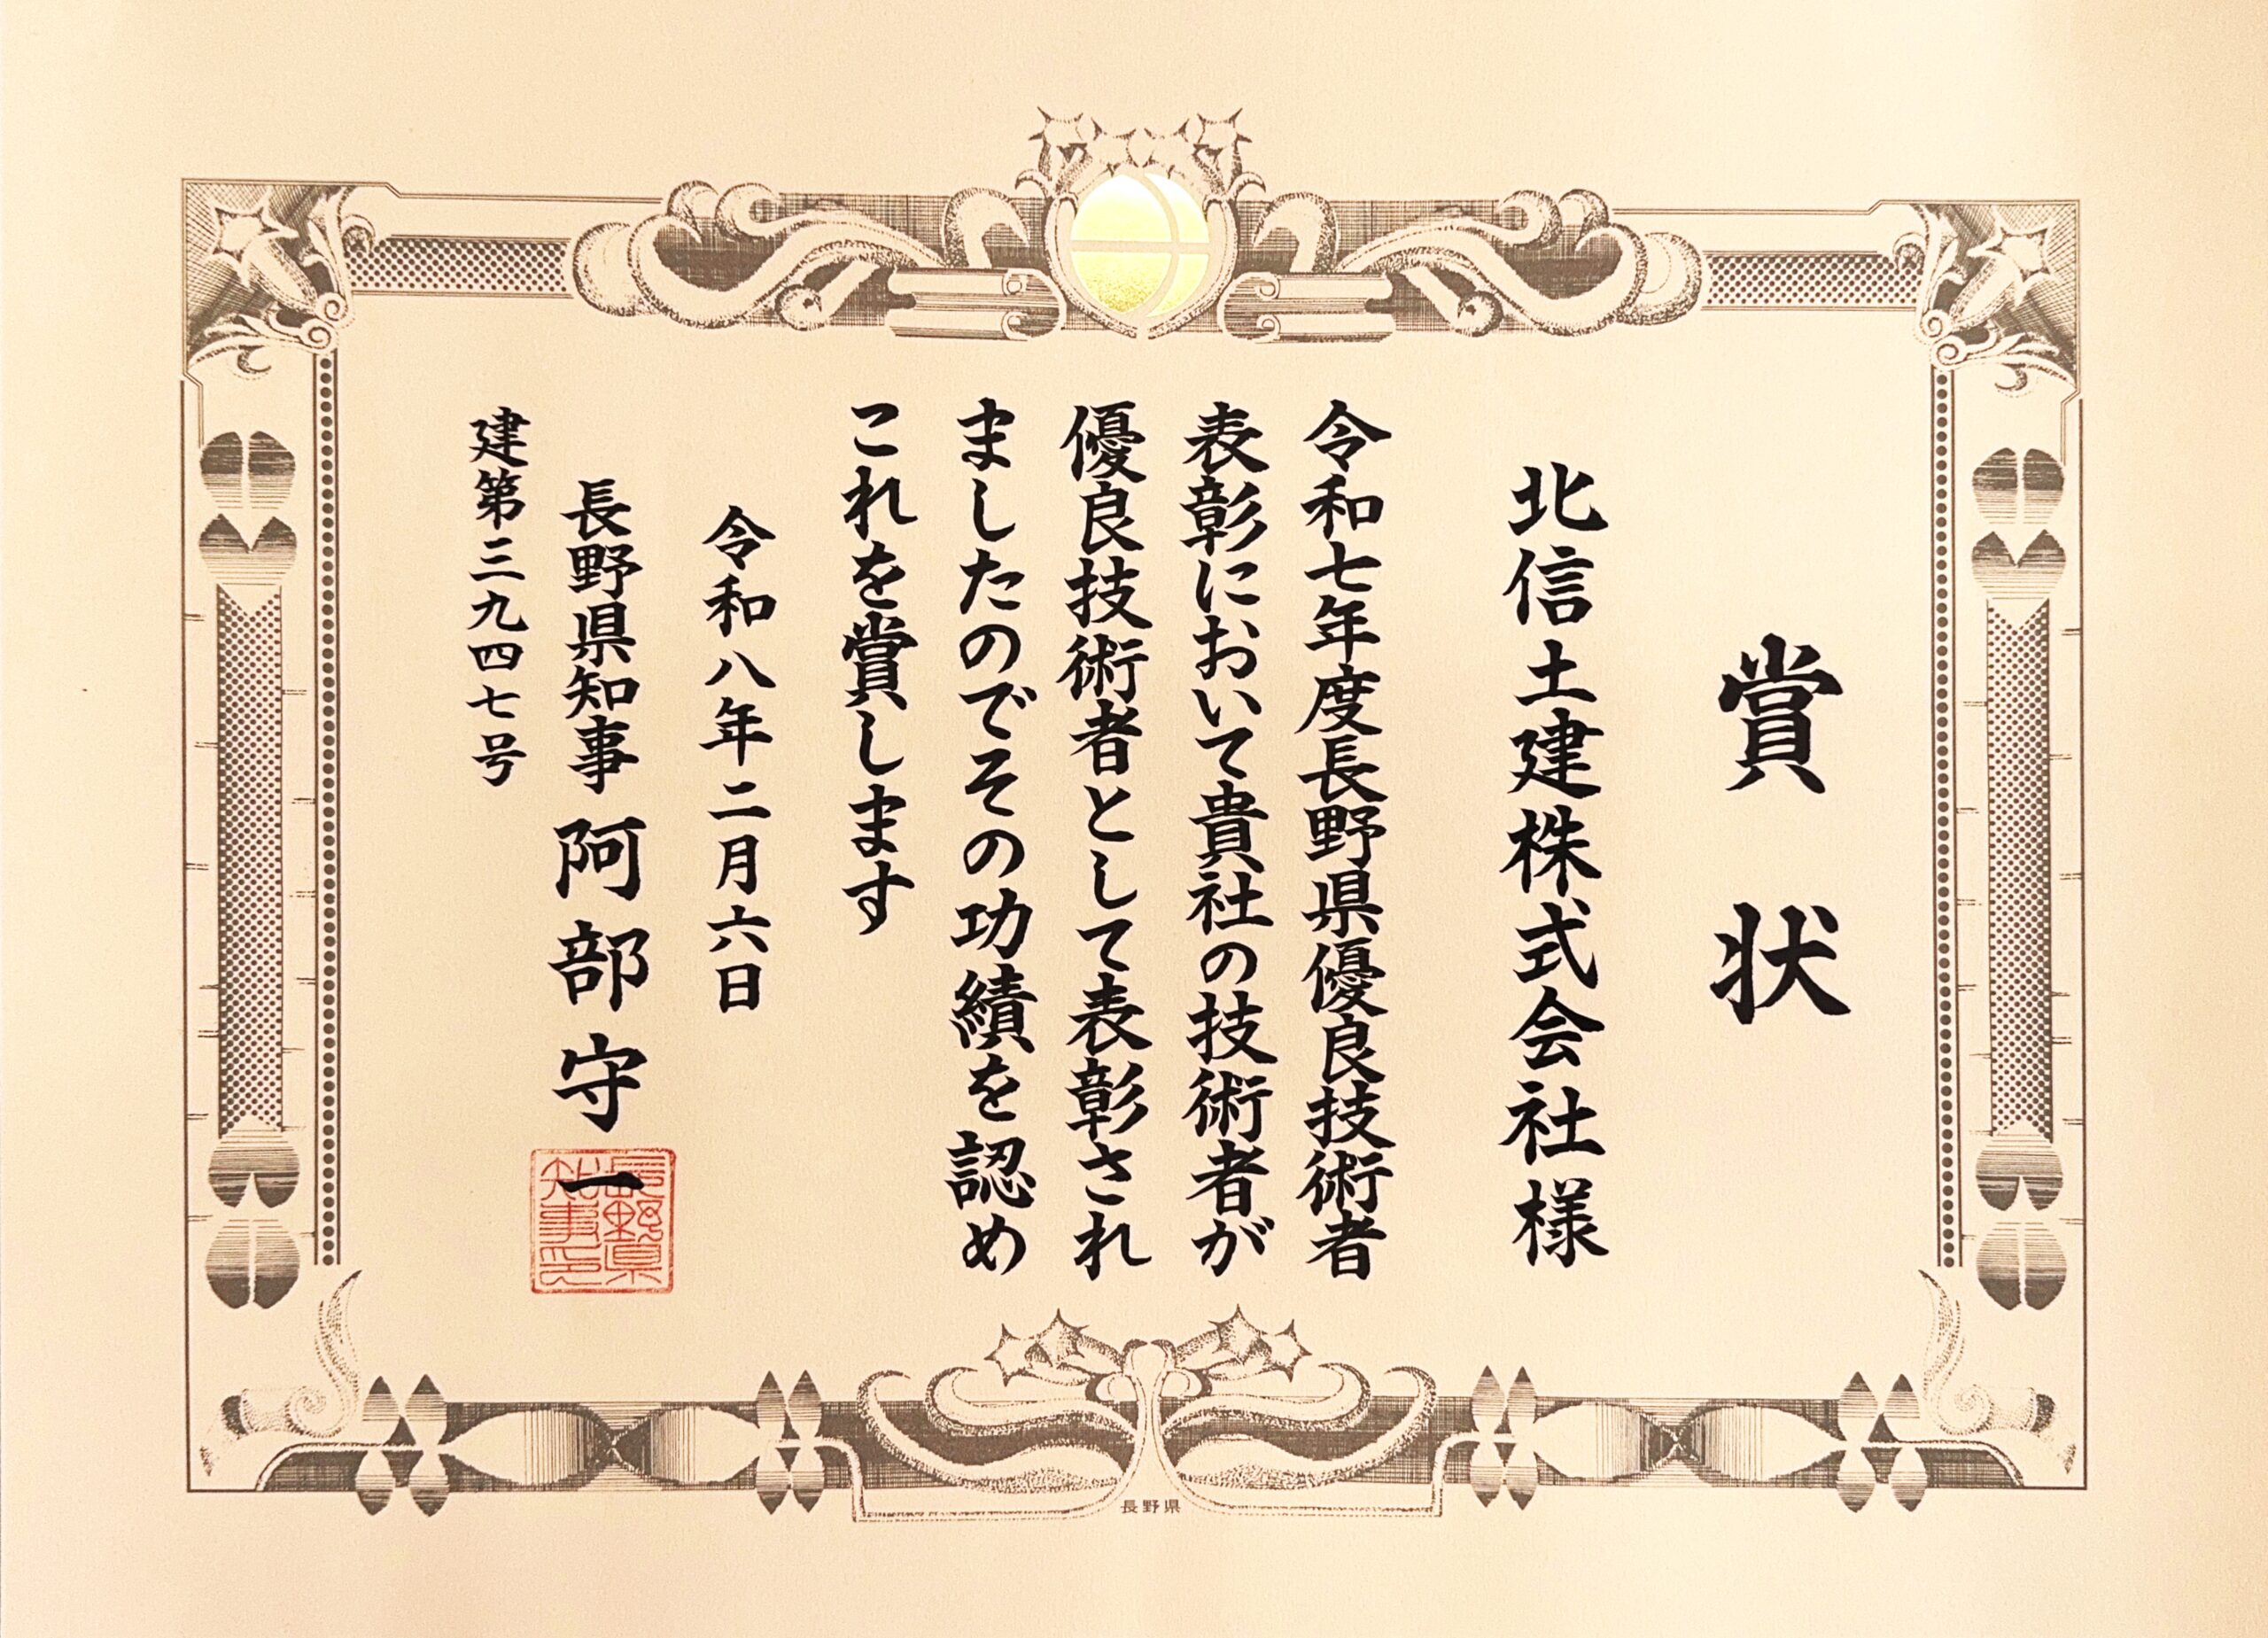 賞状
北信土建株式会社様
令和七年度長野県優良技術者
表彰において貴社の技術者が
優良技術者として表彰され
ましたのでその功績を認め
これを賞します
令和八年二月六日
長野県知事 阿部守一
長野県知事印
建第三九四七号
長野県